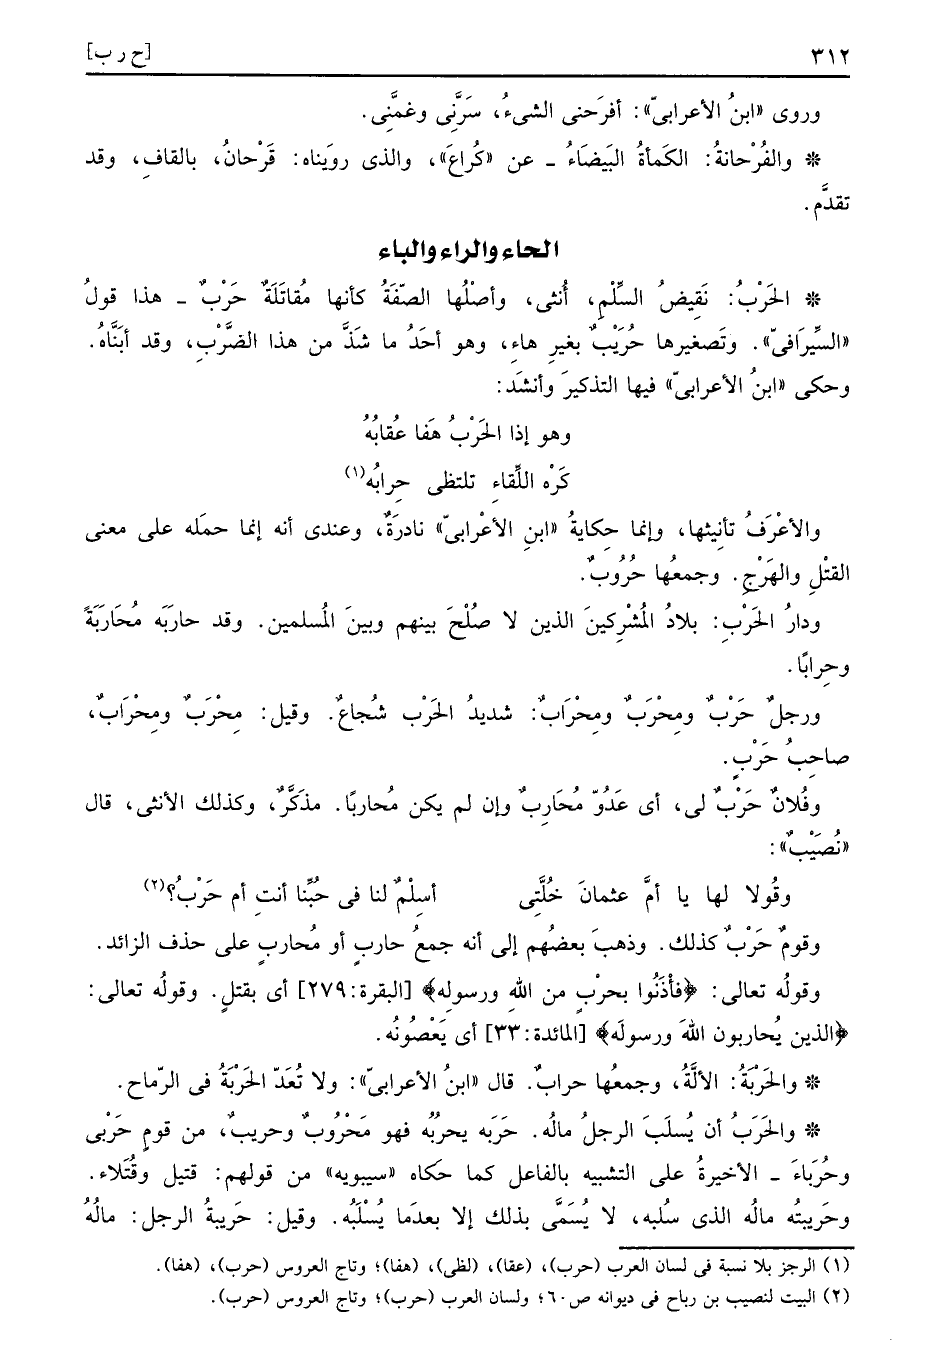 ٣١٢ [ح ر ب]
وروى «ابنُ الأعرابىّ»: أفرَحنى الشىءُ، سَرَّنِى وغمَّنِى.
* والفُرْحانةُ: الكَمأةُ البَيضَاءُ ـ عن «كُراعَ»، والذى رويَناه: قَرْحانُ، بالقافِ، وقد
تقدَّم.
الحاء والراء والباء
* الحَرْبُ: نَقِيضُ السِّلْمِ، أُنثى، وأصْلُها الصّفَةُ كأنها مُقاتَلَةٌ حَرْبٌ ـ هذا قولُ
«السِّيرَافىّ». وتَصغيرها حُرَيْبٌ بغيرِ هاءٍ، وهو أحَدُ ما شذَّ من هذا الضَّرْبِ، وقد أبَنَّاهُ.
وحكى «ابنُ الأعرابىّ» فيها التذكيرَ وأنشَدَ:
وهو إذا الحَرْبُ هَفا عُقابُهُ
كَرْه اللِّقاءِ تلتظى حِرابُه(١)
والأعْرَفُ تأنيثها، وإنما حِكايةُ «ابنِ الأعْرابىّ» نادرَةٌ، وعندى أنه إنما حمَله على معنى
القتْلِ والهَرْجِ. وجمعُها حُرُوبٌ.
ودارُ الحَرْبِ: بلادُ المُشْرِكينَ الذين لا صُلْحَ بينهم وبينَ المُسلمين. وقد حاربَه مُحَارَبَةً
وحِرابًا.
ورجلٌ حَرْبٌ ومِحْرَبٌ ومِحْرَابٌ: شديدُ الحَرْب شُجاعٌ. وقيل: مِحْرَبٌ ومِحْرَابٌ،
صاحِبُ حَرْبٍ.
وفُلانٌ حَرْبٌ لى، أى عَدُوّ مُحَارِبٌ وإن لم يكن مُحاربًا. مذكَّرٌ، وكذلك الأنثى، قال
«نُصَيْبٌ»:
وقُولا لها يا أمَّ عثمانَ خُلَّتِى أسِلْمٌ لنا فى حُبِّنا أنتِ أم حَرْبُ؟(٢)
وقومٌ حَرْبٌ كذلك. وذهبَ بعضُهم إلى أنه جمعُ حاربٍ أو مُحاربٍ على حذف الزائد.
وقولُه تعالى: ﴿فأْذَنُوا بحرْبٍ من اللهِ ورسوله﴾ [البقرة:٢٧٩] أى بقتلٍ. وقولُه تعالى:
﴿الذين يُحاربون اللهَ ورسولَه﴾ [المائدة:٣٣] أى يَعْصُونُه.
* والحَرْبَةُ: الألَّةُ، وجمعُها حرابٌ. قال «ابنُ الأعرابىّ»: ولا تُعَدّ الحَرْبَةُ فى الرّماح.
* والحَرَبُ أن يُسلَبَ الرجلُ مالُه. حرَبَه يحرُبُه فهو مَحْرُوبٌ وحريبٌ، من قومٍ حَرْبى
وحُرَباءَ ـ الأخيرةُ على التشبيه بالفاعل كما حكَاه «سيبويه» من قولهم: قتيل وقُتَلاء.
وحَريبتُه مالُه الذى سُلبه، لا يُسَمَّى بذلك إلا بعدَما يُسْلَبُه. وقيل: حَريبةُ الرجل: مالُهُ
(١) الرجز بلا نسبة فى لسان العرب (حرب)، (عقا)، (لظى)، (هفا)؛ وتاج العروس (حرب)، (هفا).
(٢) البيت لنصيب بن رباح فى ديوانه ص٦٠؛ ولسان العرب (حرب)؛ وتاج العروس (حرب).